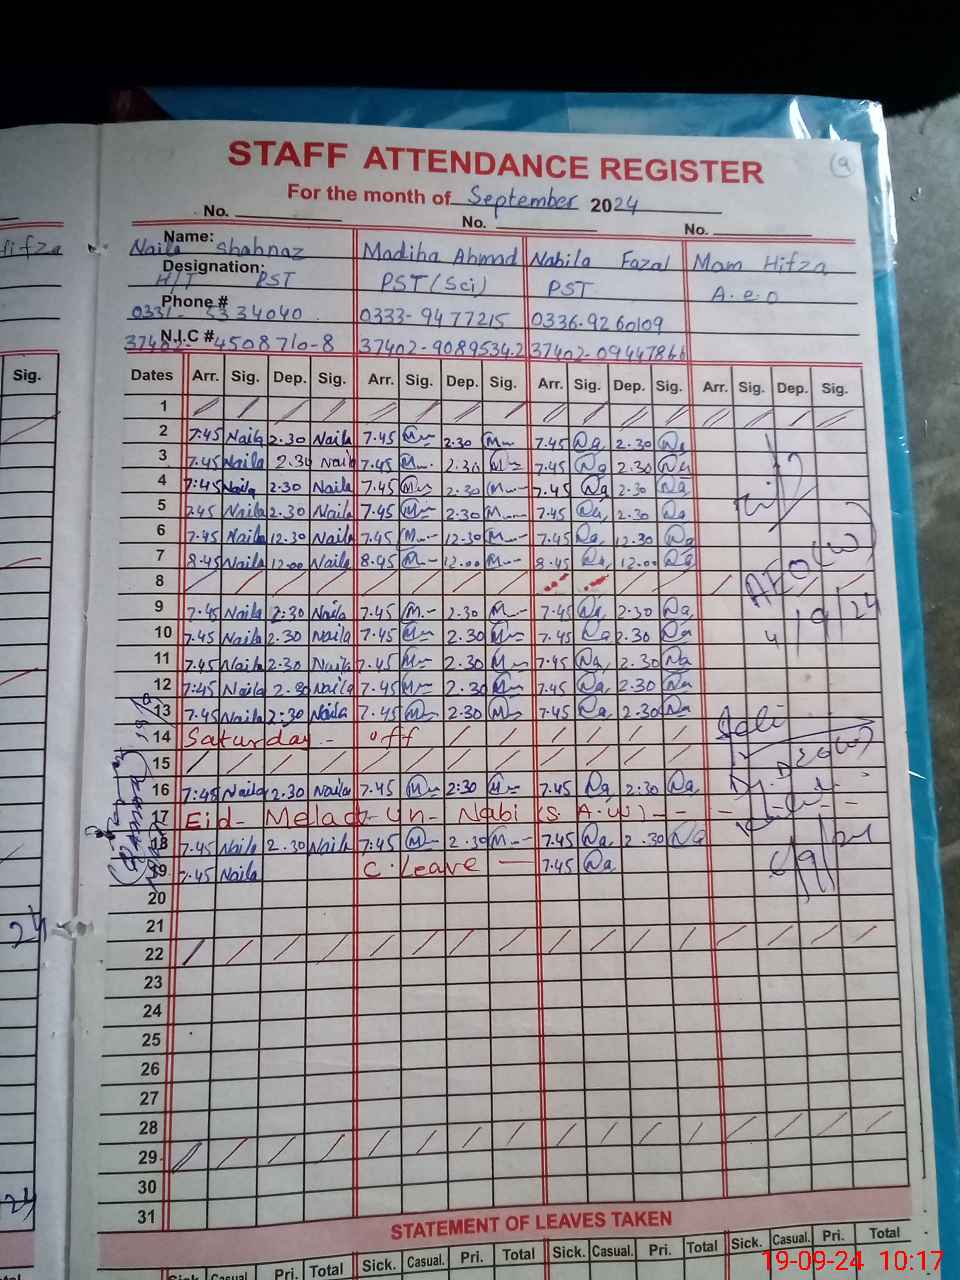 STAFF ATTENDANCE REGISTER
9
For the month of September 2024
No. No. No.
Name: Naila Shahnaz Madiha Ahmad Nabila Fazal Mam Hifza
Designation: H/T PST PST (Sci) PST A.e.o
Phone # 0333-9477215 0336-9260109
N.I.C #
Sig. Dates Arr. Sig. Dep. Sig. Arr. Sig. Dep. Sig. Arr. Sig. Dep. Sig. Arr. Sig. Dep. Sig.
1
2 7.45 Naila 2.30 Naila 7.45 M 2.30 M 7.45 Na 2.30 Na
3 7.45 Naila 2.30 Naila 7.45 M 2.30 M 7.45 Na 2.30 Na
4 7:45 Naila 2.30 Naila 7.45 M 2.30 M 7.45 Na 2.30 Na
5 7.45 Naila 2.30 Naila 7.45 M 2.30 M 7.45 Na 2.30 Na
6 7.45 Naila 12.30 Naila 7.45 M 12.30 M 7.45 Na 12.30 Na
7 8.45 Naila 12.00 Naila 8.45 M 12.00 M 8.45 Na 12.00 Na
8
AEO(W)
9 7.45 Naila 2:30 Naila 7.45 M 2.30 M 7.45 Na 2.30 Na
10 7.45 Naila 2.30 Naila 7.45 M 2.30 M 7.45 Na 2.30 Na
4/9/24
11 7.45 Naila 2.30 Naila 7.45 M 2.30 M 7.45 Na 2.30 Na
12 7:45 Naila 2.30 Naila 7.45 M 2.30 M 7.45 Na 2.30 Na
13 7.45 Naila 2:30 Naila 7.45 M 2.30 M 7.45 Na 2.30 Na
14 Saturday - off
15
16 7:45 Naila 2.30 Naila 7.45 M 2:30 M 7.45 Na 2:30 Na
17 Eid - Melad - Un - Nabi (S.A.W) - - -
18 7.45 Naila 2.30 Naila 7:45 M 2.30 M 7.45 Na 2.30 Na
19 7.45 Naila C. Leave - 7.45 Na
20
21
22
23
24
25
26
27
28
29
30
31
STATEMENT OF LEAVES TAKEN
Sick. Casual. Pri. Total Sick. Casual. Pri. Total Sick. Casual. Pri. Total Sick. Casual. Pri. Total
19-09-24 10:17